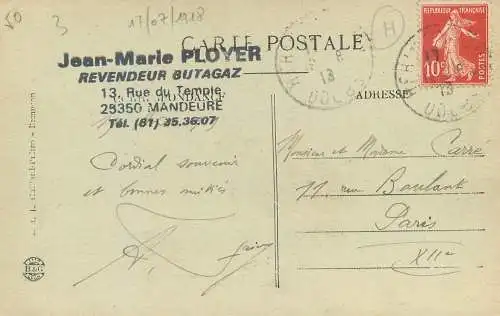 50
3
17/07/1918
H
CARTE POSTALE
Jean-Marie PLOYER
REVENDEUR BUTAGAZ
13, Rue du Temple
25350 MANDEURE
Tél. (81) 35.36.07
CORRESPONDANCE
ADRESSE
REPUBLIQUE FRANÇAISE
10c
POSTES
13
8
13
DOUBS
Cordial souvenir
et bonnes amitiés
Monsieur et Madame Carre
11, rue Boulant
Paris
XIIe
B&G